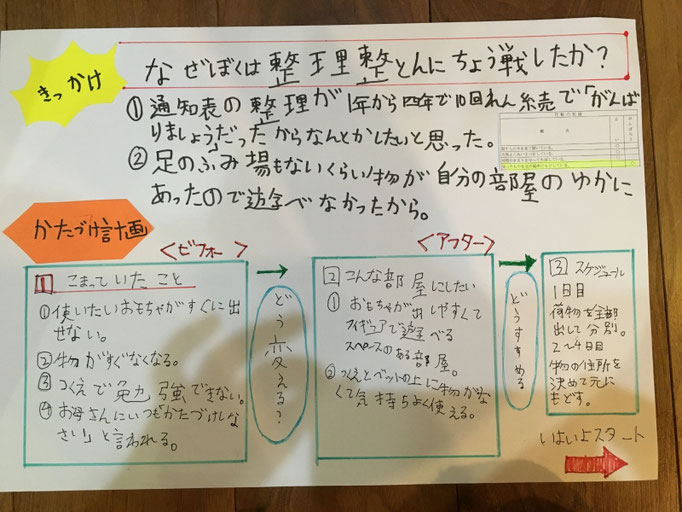 きっかけ
なぜぼくは整理整とんにちょう戦したか?
①通知表の整理が1年から四年で10回れん続で「がんば
りましょう」だったからなんとかしたいと思った。
②足のふみ場もないくらい物が自分の部屋のゆかに
あったので遊べなかったから。
かたづけ計画
<ビフォー>
1 こまっていたこと
①使いたいおもちゃがすぐに出
せない。
②物がすぐなくなる。
③つくえで勉強できない。
④お母さんにいつも「かたづけしな
さい」と言われる。
どう変える?
<アフター>
2 こんな部屋にしたい
① おもちゃが出しやすくて
フィギュアで遊べる
スペースのある部屋。
②つくえとベットの上に物がな
くて気持ちよく使える。
どうすすめる
3 スケジュール
1日目
荷物を全部
出して分別。
2~4日目
物の住所を
決めて元に
もどす。
いよいよスタート